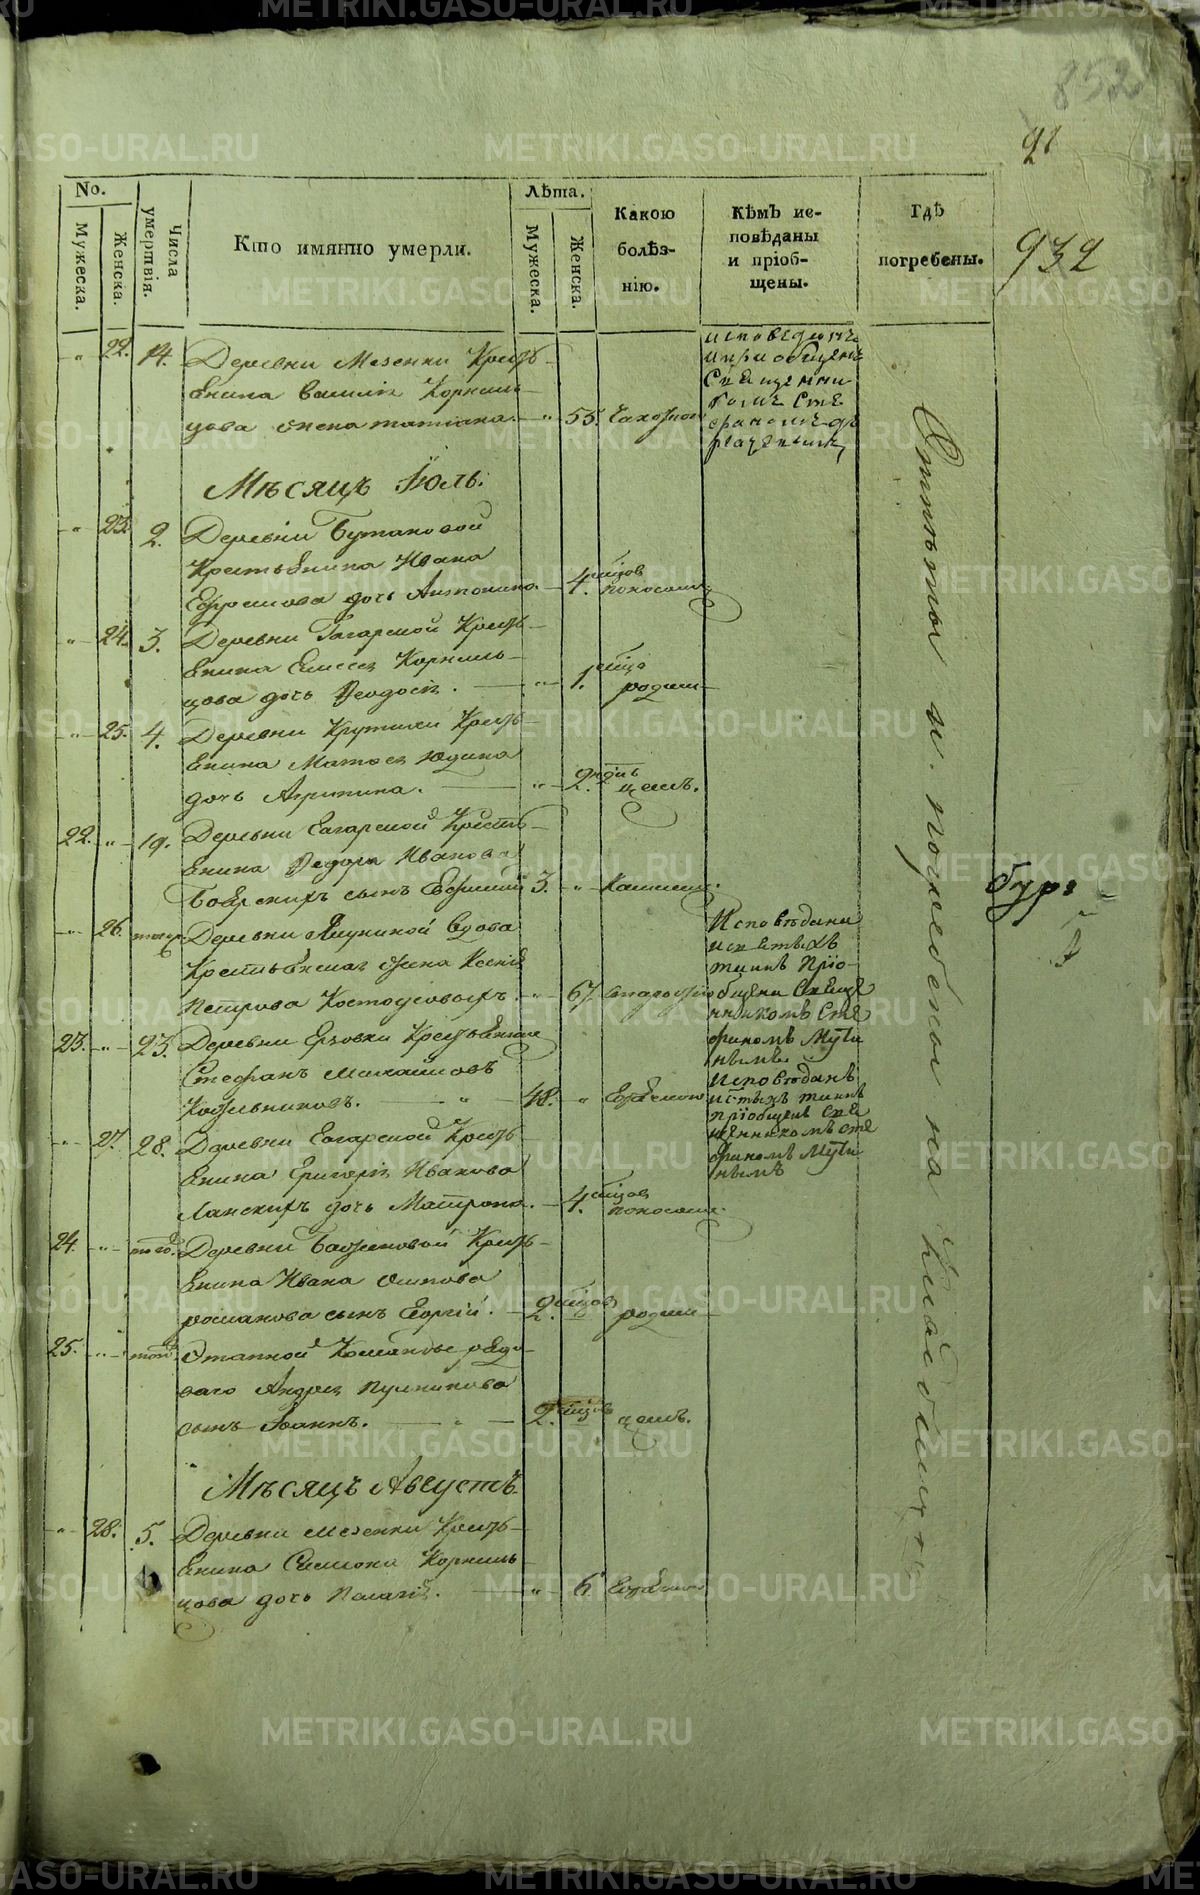 852
91
932
No.
Мужеска.
Женска.
Числа умертвія.
Кто имянно умерли.
Лѣта.
Мужеска.
Женска.
Какою болѣз-
нію.
Кѣмъ ис-
повѣданы
и пріоб-
щены.
Гдѣ
погребены.
22. 14. Деревни Мезенки Кресть-
янина Василія Корниль-
цова жена татіана. 55. Чахоткою
исповедана
и приобщена
Священни
комъ Сте
фаномъ
Мѣсяцъ Іюль.
23. 2. Деревни Бутаковой
Крестьянина Ивана
Ефремова дочь Антонина 4. мѣсяцов поносомъ
24. 3. Деревни Гагарской Кресть-
янина Елисея Корниль-
цова дочь Феодосія. 1. мѣсяца родим-
25. 4. Деревни Крутихи Кресть-
янина Матвея Юдина
дочь Агрипина. 2. недѣль цемъ.
22. 19. Деревни Гагарской Кресть-
янина Федора Иванова
Боярскихъ сынъ Евфимій 3. Кашлемъ.
26. того Деревни Ялуниной вдова
Крестьянская жена Ксенія
Петрова Костоусовыхъ. 67. старостію
Исповѣдана
и святыхъ
тайнъ Пріо-
бщена Свяще
нникомъ Сте
фаномъ Мути
нымъ
23. 23. Деревни Ерзовки Крестьянина
Стефанъ Михайловъ
Кожевниковъ. 48. Горячкою
Исповѣданъ
и стыхъ тайнъ
пріобщенъ Свя
щенникомъ Сте
фаномъ Мути
нымъ
27. 28. Деревни Гагарской Кресть-
янина Григорія Иванова
Ланскихъ дочь Матрона. 4. мѣсяцов поносомъ.
24. того. Деревни Баженовой Кресть-
янина Ивана Осипова
романова сынъ Георгій. 2. мѣсяцов родим-
25. того Этапной Команды рядо-
ваго Андрея Пушникова
сынъ Іоаннъ. 2. мѣсяцов цемъ.
Мѣсяцъ Августъ.
28. 5. Деревни Мезенки Кресть-
янина Симіона Корниль-
цова дочь Пелагія. 6. Горячкою
Отпѣты и погребены на кладбищѣ
бург
METRIKI.GASO-URAL.RU